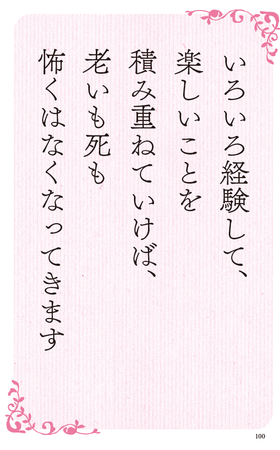 いろいろ経験して、
楽しいことを
積み重ねていけば、
老いも死も
怖くはなくなってきます
100